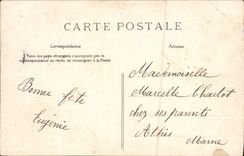 CARTE POSTALE
Correspondance
Adresse
Tous les pays étrangers n'acceptent pas la
correspondance au recto, se renseigner à la Poste
Bonne fête
Eugénie
Mademoiselle
Marcelle Charlot
chez ses parents
Athis
Marne